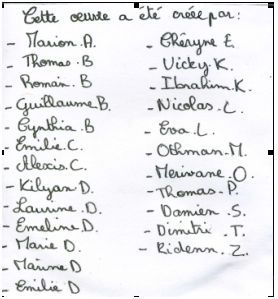 Cette oeuvre a été créée par:
- Marion.A.
- Thomas.B
- Romain.B
- Guillaume.B.
- Cynthia.B
- Emilie.C.
- Alexis.C.
- Kilyan D.
- Laurine.D.
- Emeline D.
- Marie D.
- Marine D
- Emilie D
- Chéryne E.
- Vicky.K.
- Ibrahim.K.
- Nicolas.L.
- Eva.L.
- Othman.M.
- Merwane.O.
- Thomas.P.
- Damien.S.
- Dimitri.T.
- Ridenn.Z.